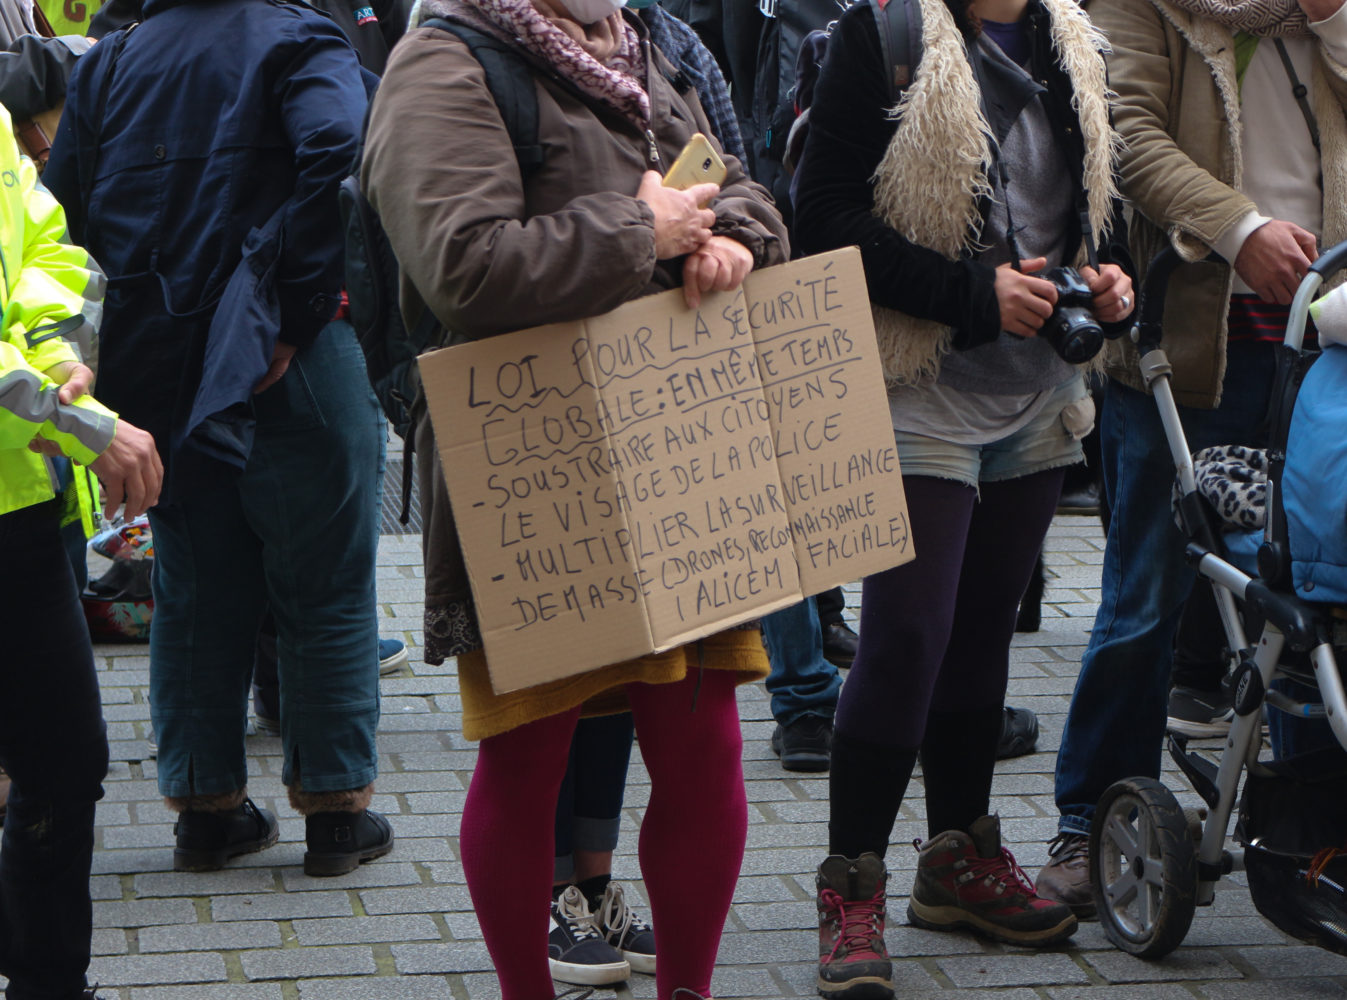 LOI POUR LA SÉCURITÉ
GLOBALE : EN MÊME TEMPS
- SOUSTRAIRE AUX CITOYENS
LE VISAGE DE LA POLICE
- MULTIPLIER LA SURVEILLANCE
DE MASSE (DRONES, RECONNAISSANCE
, ALICEM FACIALE,)